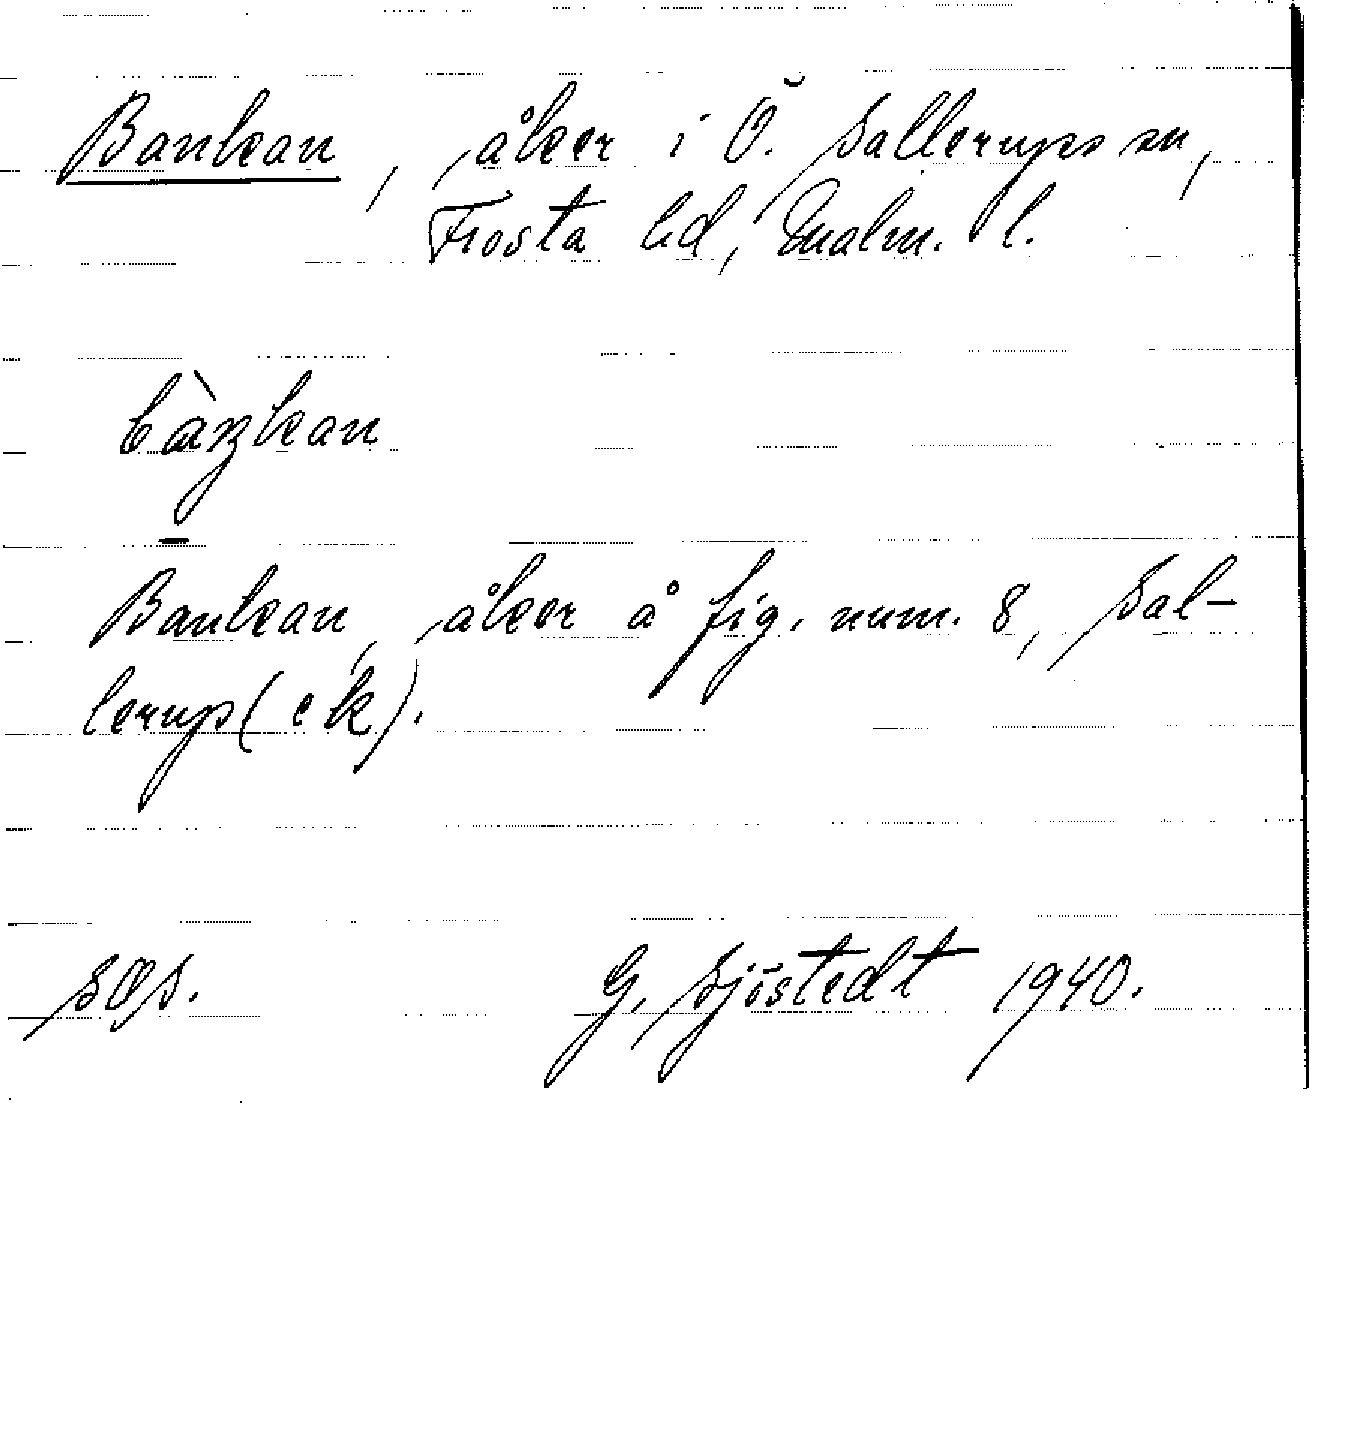 Bankan, åker i Ö. Sallerups sn,
Frosta hd, Malm. l.
bàŋkan
Bankan, åker å fig. num. 8, Sal-
lerup (ek).
SOS.
G. Sjöstedt 1940.